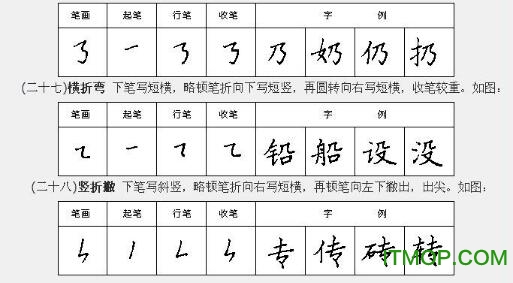 笔画 起笔 行笔 收笔 字 例
㇋ ㇐ ㇋ ㇋ 乃 奶 仍 扔
(二十七)横折弯 下笔写短横，略顿笔折向下写短竖，再圆转向右写短横，收笔较重。如图：
笔画 起笔 行笔 收笔 字 例
㇍ ㇐ ㇍ ㇍ 铅 船 设 没
(二十八)竖折撇 下笔写斜竖，略顿笔折向右写短横，再顿笔向左下撇出，出尖。如图：
笔画 起笔 行笔 收笔 字 例
ㄣ 丨 ㇗ ㄣ 专 传 砖 转
ITMOP.com